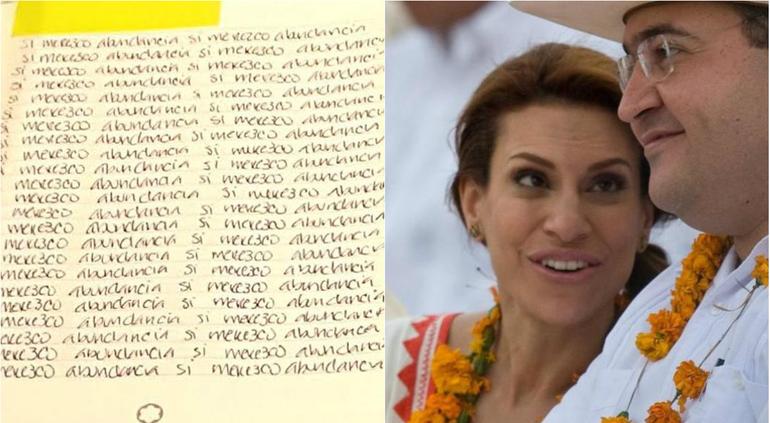 si merezco abundancia si merezco abundancia
si merezco abundancia si merezco abundancia
si merezco abundancia si merezco abundancia
si merezco abundancia si merezco abundancia
si merezco abundancia si merezco abundancia
si merezco abundancia si merezco abundancia
si merezco abundancia si merezco abundancia
si merezco abundancia si merezco abundancia
si merezco abundancia si merezco abundancia
merezco abundancia si merezco abundancia
merezco abundancia si merezco abundancia
merezco abundancia si merezco abundancia
merezco abundancia si merezco abundancia
merezco abundancia si merezco abundancia
merezco abundancia si merezco abundancia
merezco abundancia si merezco abundancia
merezco abundancia si merezco abundancia
merezco abundancia si merezco abundancia
merezco abundancia si merezco abundancia
merezco abundancia si merezco abundancia
merezco abundancia si merezco abundancia
merezco abundancia si merezco abundancia
merezco abundancia si merezco abundancia